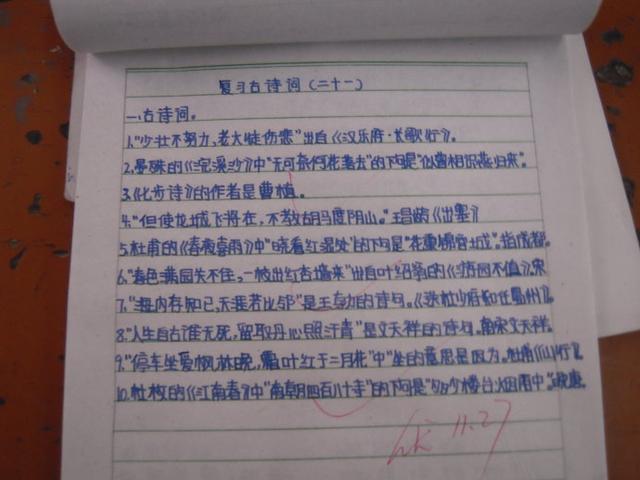 复习古诗词(二十一)
一.古诗词。
1."少壮不努力,老大徒伤悲"出自《汉乐府·长歌行》。
2.晏殊的《浣溪沙》中"无可奈何花落去"的下句是"似曾相识燕归来"。
3.《七步诗》的作者是曹植。
4."但使龙城飞将在,不教胡马度阴山。"王昌龄《出塞》
5.杜甫的《春夜喜雨》中"晓看红湿处"的下句是"花重锦官城",指成都。
6."春色满园关不住,一枝出红杏墙来"出自叶绍翁的《游园不值》,宋
7."海内存知己,天涯若比邻"是王勃的诗句。《送杜少府如任蜀州》。
8."人生自古谁无死,留取丹心照汗青"是文天祥的诗句。南宋文天祥。
9."停车坐爱枫林晚,霜叶红于二月花"中"坐的意思是因为。杜甫《山行》
10.杜牧的《江南春》中"南朝四百八十寺"的下句是"多少楼台烟雨中"。晚唐
11.27